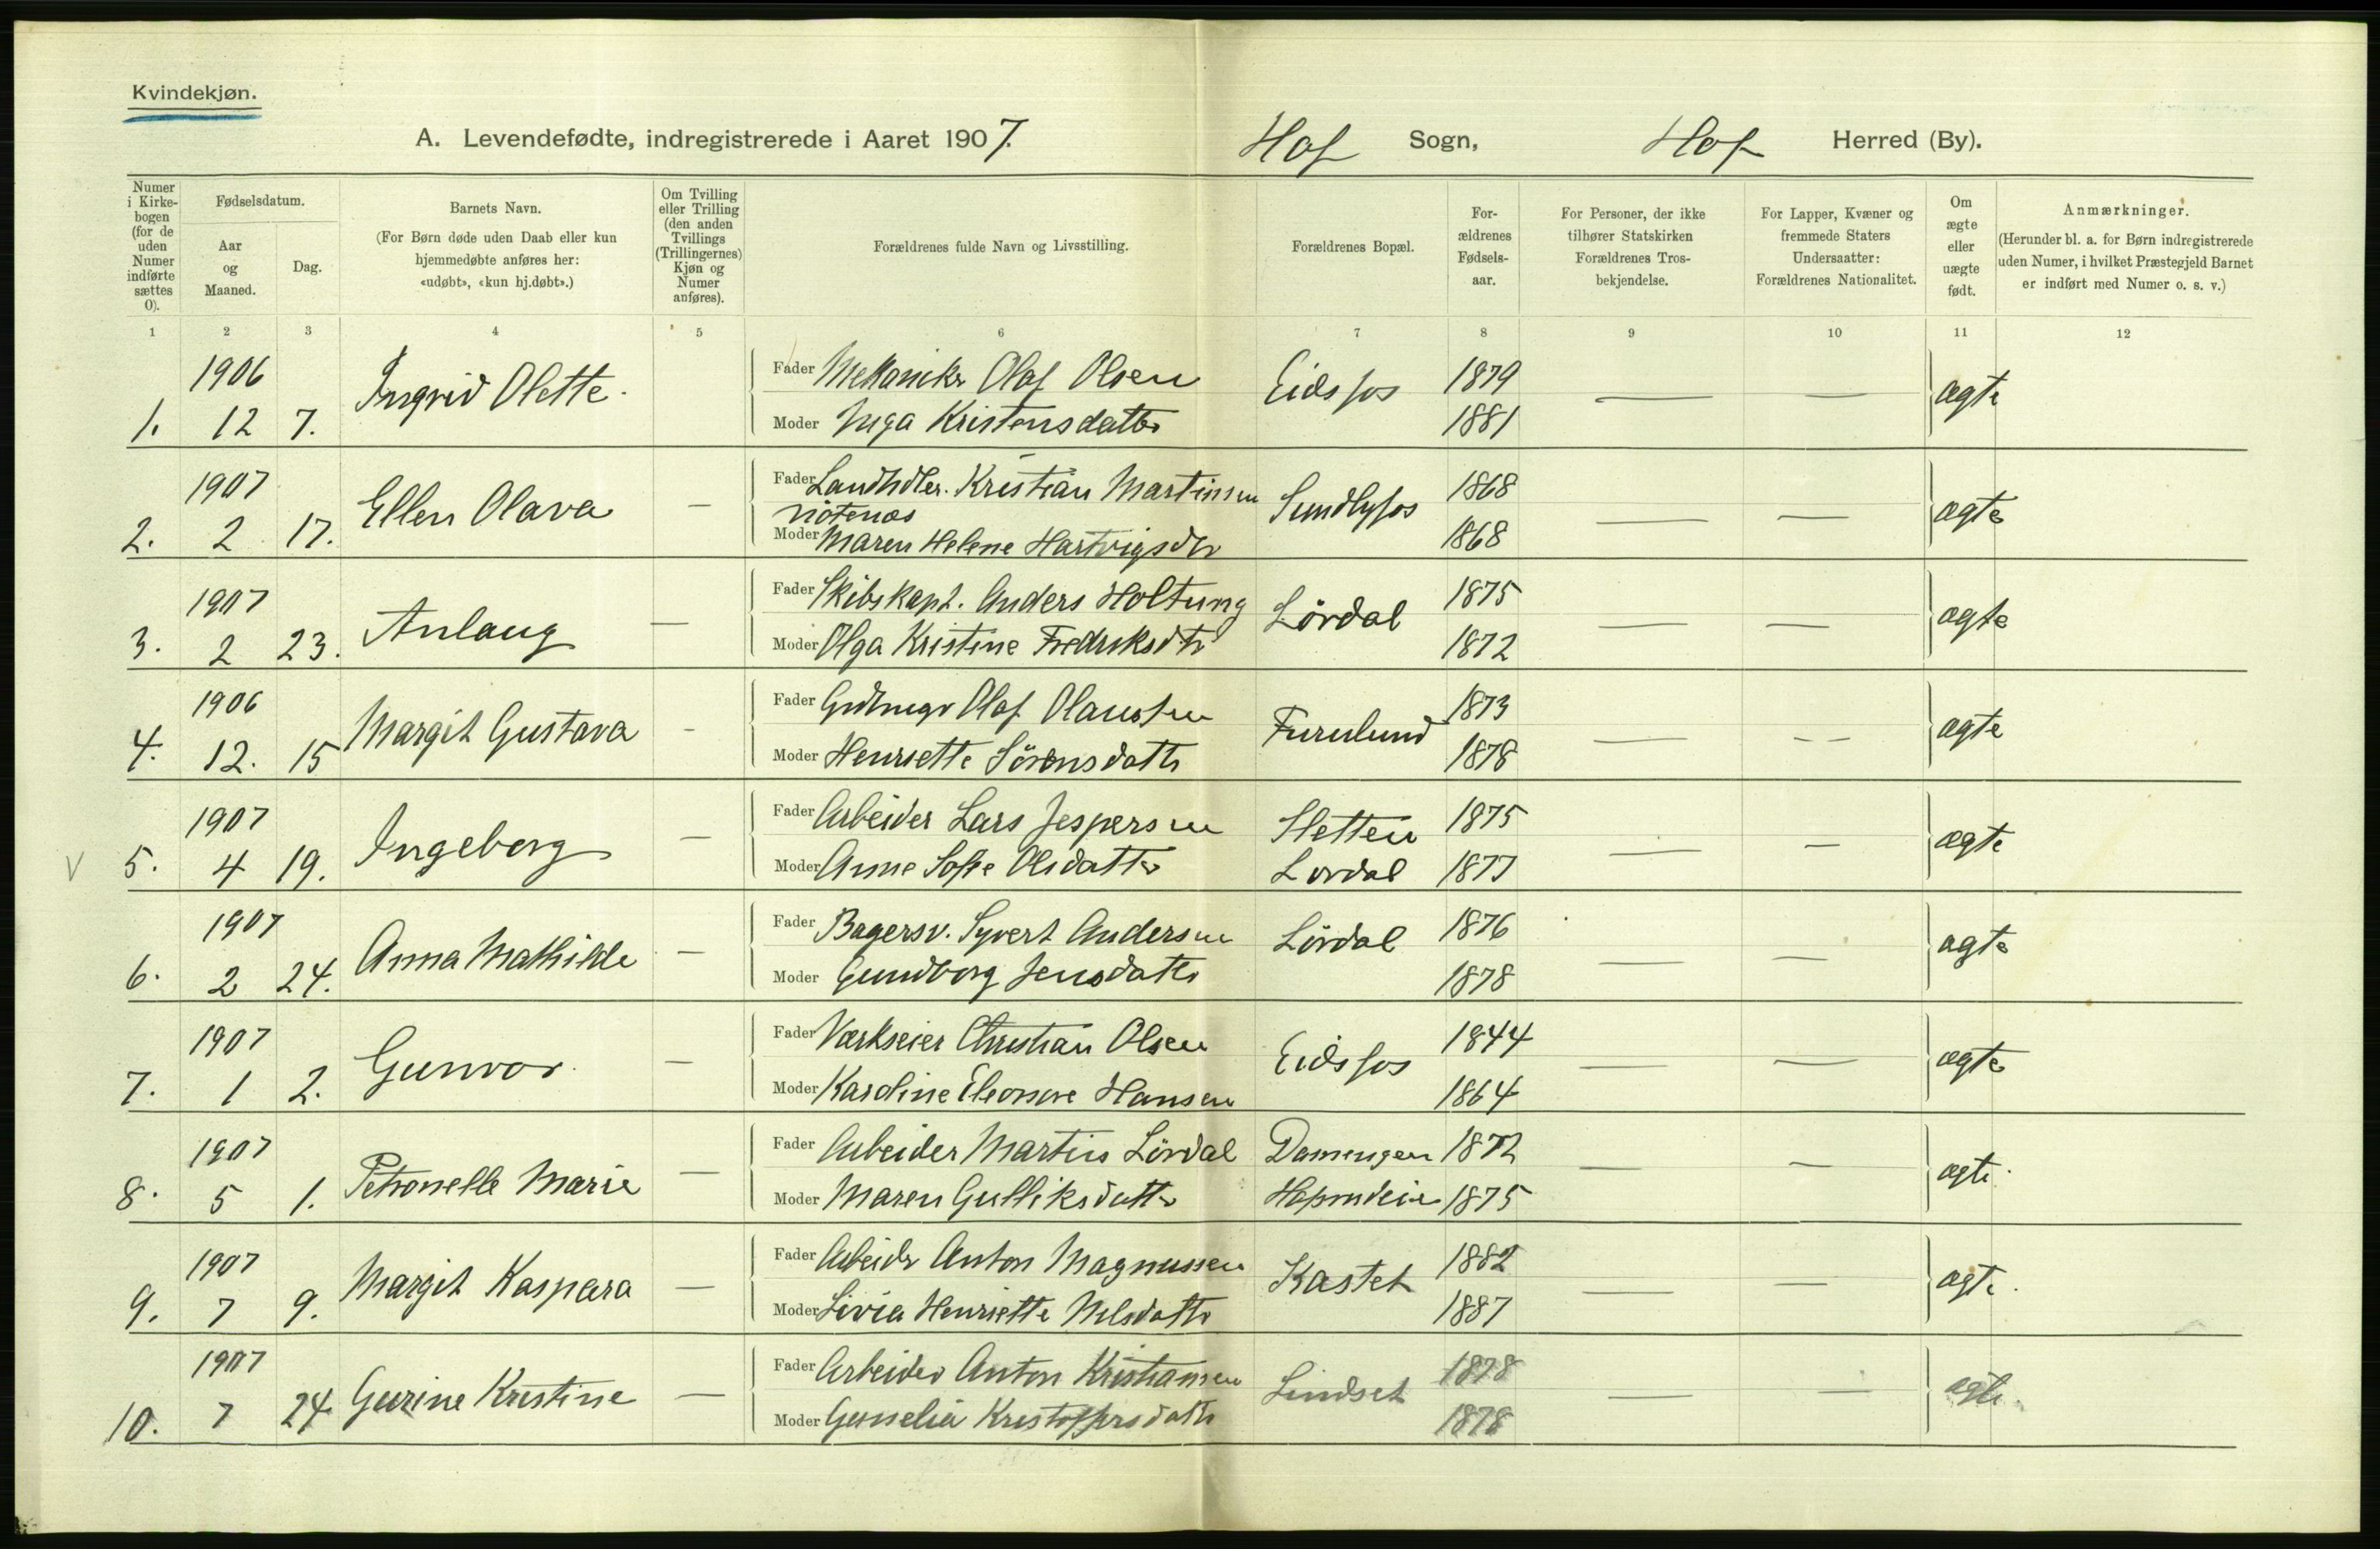 Kvindekjøn.
A. Levendefødte, indregistrerede i Aaret 1907. Hof Sogn, Hof Herred (By).
Numer i Kirkebogen (for de uden Numer indførte sættes 0).
Fødselsdatum.
Aar og Maaned.
Dag.
Barnets Navn.
(For Børn døde uden Daab eller kun hjemmedøbte anføres her: «udøbt», «kun hj.døbt».)
Om Tvilling eller Trilling (den anden Tvillings (Trillingernes) Kjøn og Numer anføres).
Forældrenes fulde Navn og Livsstilling.
Forældrenes Bopæl.
Forældrenes Fødselsaar.
For Personer, der ikke tilhører Statskirken Forældrenes Trosbekjendelse.
For Lapper, Kvæner og fremmede Staters Undersaatter: Forældrenes Nationalitet.
Om ægte eller uægte født.
Anmærkninger.
(Herunder bl. a. for Børn indregistrerede uden Numer, i hvilket Præstegjeld Barnet er indført med Numer o. s. v.)
1 2 3 4 5 6 7 8 9 10 11 12
1906 Fader Mekaniker Olaf Olsen Eidsfos 1879
1. 12 7. Ingrid Olette. Moder Inga Kristensdatter 1881 — — ægte
1907 Fader Landhdler. Kristian Martinsen 1868
nötenæs
2. 2 17. Ellen Olava — Moder Maren Helene Hartvigsdtr Sundbyfos 1868 — — ægte
1907 Fader Skibskapt. Anders Holtung Lördal 1875
3. 2 23. Anlaug — Moder Olga Kristine Fredriksdtr 1872 — — ægte
1906 Fader Olaf Olaussen Furulund 1873
4. 12. 15 Margit Gustava - Moder Henriette Sörensdatter 1878 — -- ægte
1907 Fader Arbeider Lars Jespersen Sletten 1875
V 5. 4 19. Ingeborg — Moder Anne Sofie Olsdatter Lördal 1877 — — ægte
1907 Fader Bagersv. Syvert Andersen Lördal 1876
6. 2 24. Anna Mathilde — Moder Gundborg Jensdatter 1878 — — ægte
1907 Fader Værkseier Christian Olsen Eidsfos 1844
7. 1 2. Gunvor. — Moder Karoline Eleonore Hansen 1864 — — ægte
1907 Fader Arbeider Martin Lördal Damengen 1872
8. 5 1. Petronelle Marie — Moder Maren Gulliksdatter 1875 — — ægte.
1907 Fader Arbeider Anton Magnussen Kastet 1882
9. 7 9. Margit Kaspara — Moder Livia Henriette Nelsdatter 1887 — — ægte.
1907 Fader Arbeider Anton Kristiansen Lindset 1878
10. 7 24. Gurine Kristine — Moder Gunelia Kristoffersdatter 1878 — — ægte.